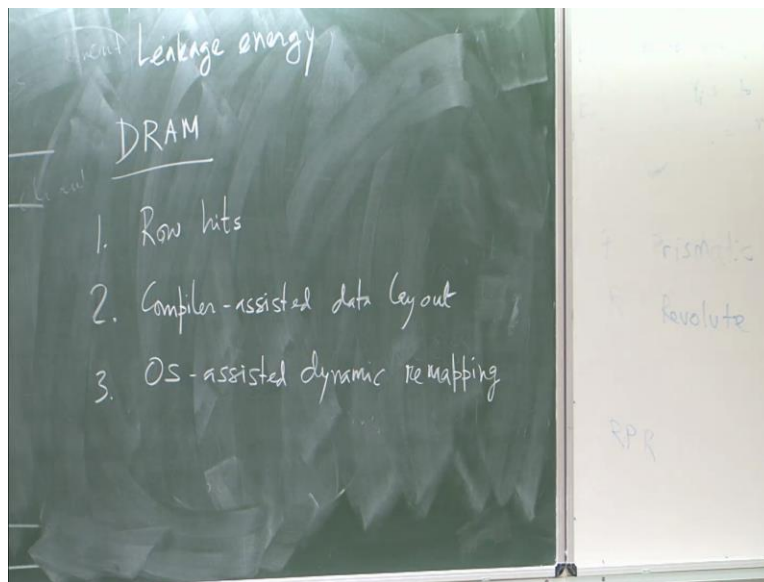 Leakage energy
DRAM
1. Row hits
2. Compiler-assisted data layout
3. OS-assisted dynamic remapping
Revolute
RPR